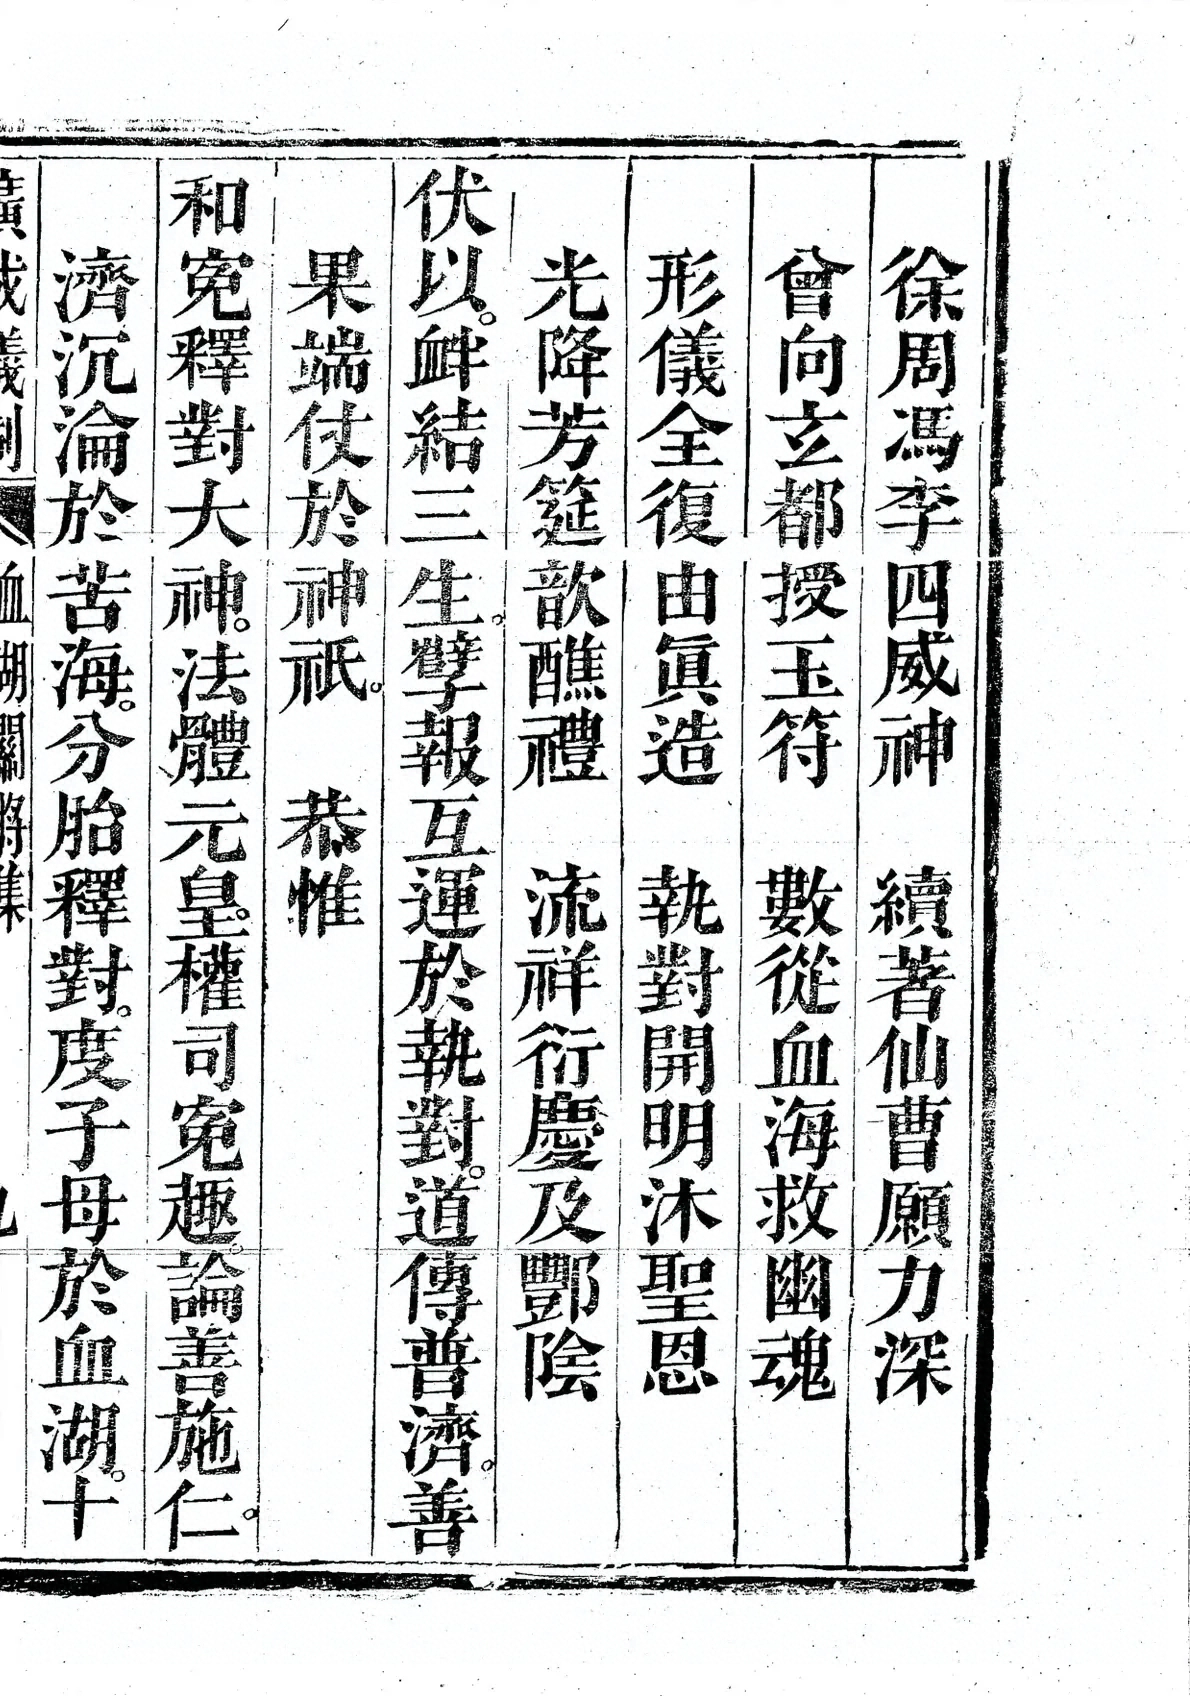 徐周馮李四威神　續著仙曹願力深
曾向玄都授玉符　數從血海救幽魂
形儀全復由眞造　執對開明沐聖恩
光降芳筵歆醮禮　流祥衍慶及酆陰
伏以。衅結三生。孽報互運於執對。道傳普濟。善
果端仗於神祇。　恭惟
和寃釋對大神。法體元皇。權司寃趣。論善施仁。
濟沉淪於苦海。分胎釋對。度子母於血湖。十
廣成儀制　血湖關將集　九